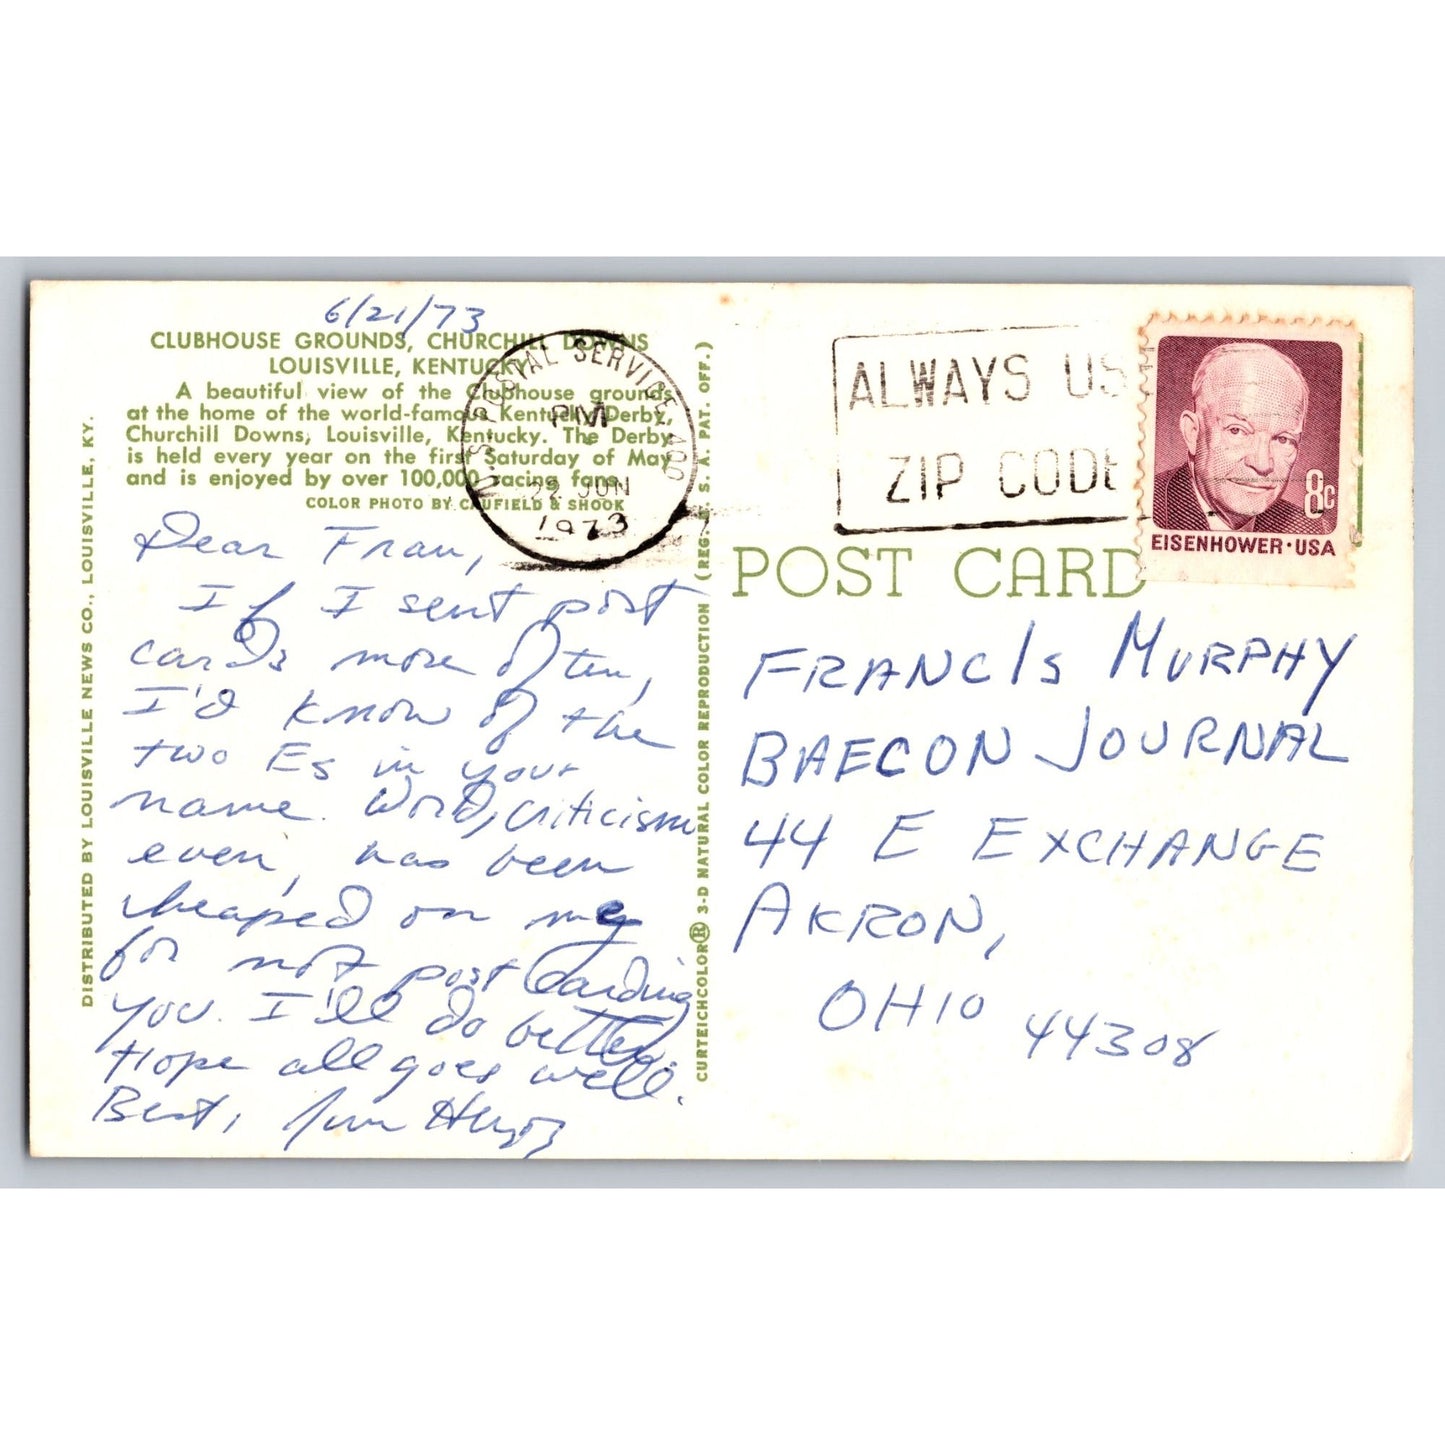 6/21/73
CLUBHOUSE GROUNDS, CHURCHILL DOWNS
LOUISVILLE, KENTUCKY
A beautiful view of the Clubhouse grounds
at the home of the world-famous Kentucky Derby,
Churchill Downs, Louisville, Kentucky. The Derby
is held every year on the first Saturday of May
and is enjoyed by over 100,000 racing fans.
COLOR PHOTO BY CAUFIELD & SHOOK
DISTRIBUTED BY LOUISVILLE NEWS CO., LOUISVILLE, KY.
Dear Fran,
If I sent post
cards more often,
I'd know of the
two Es in your
name. Word, criticism
even, has been
heaped on me
for not post carding
you. I'll do better.
Hope all goes well.
Best, Jim
CURTEICHCOLOR® 3-D NATURAL COLOR REPRODUCTION (REG. U. S. A. PAT. OFF.)
U.S. POSTAL SERVICE 400
PM
22 JUN
1973
ALWAYS US
ZIP CODE
8c
EISENHOWER·USA
POST CARD
FRANCIS MURPHY
BAECON JOURNAL
44 E EXCHANGE
AKRON,
OHIO 44308